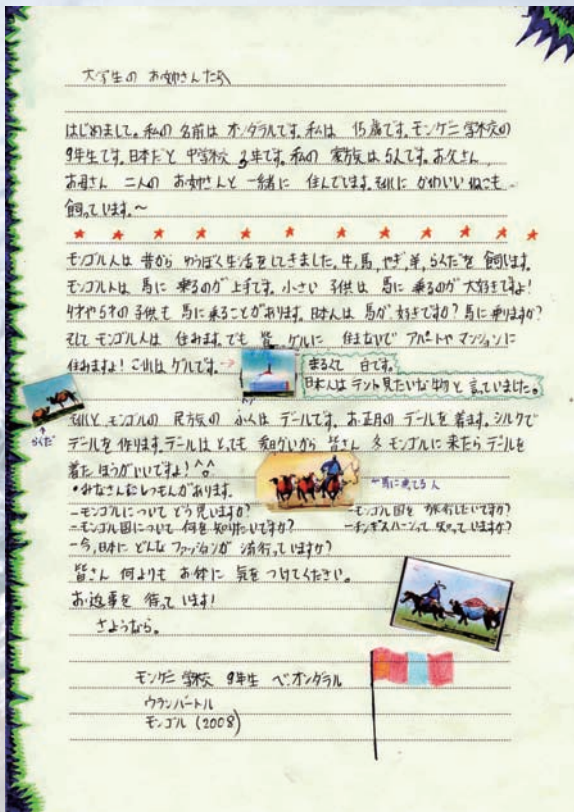 大学生の お姉さんたちへ
はじめまして。私の 名前は オンダラルです。私は 15歳です。モンゲニ 学校の
9年生です。日本だと 中学校 3年です。私の 家族は 5人です。お父さん、
お母さん 二人の お姉さんと 一緒に 住んでいます。それに かわいい ねこも
飼っています。〜
モンゴル人は 昔から ゆうぼく生活を してきました。牛,馬,やぎ,羊,らくだを 飼います。
モンゴル人は 馬に 乗るのが 上手です。小さい 子供は 馬に 乗るのが 大好きですよ!
4才や5才の 子供も 馬に 乗ることが あります。日本人は 馬が 好きですか? 馬に 乗りますか?
そして モンゴル人は 住みます。でも 皆 ゲルに 住まないで アパートや マンションに
住みますよ! これは ゲルです。→
まるくて 白です。
日本人は テント見たいな 物と 言っていました。
ドア
らくだ
それと、モンゴルの 民族の ふくは デールです。お正月の デールを 着ます。シルクで
デールを 作ります。デールは とっても 暖かいから 皆さん 冬 モンゴルに 来たら デールを
着た ほうが いいですよ! ^^
←馬に乗てる人
・みなさんに しつもんが あります。
-モンゴルについて どう 思いますか?
-モンゴル国を 旅行したいですか?
-モンゴル国について 何を 知りたいですか?
-チンギスハーンって 知っていますか?
-今,日本に どんな ファッションが 流行っていますか?
皆さん 何よりも お体に 気を つけてください。
お返事を 待って います!
さようなら。
モンゲニ 学校 9年生 べ.オンダラル
ウランバートル
モンゴル (2008)